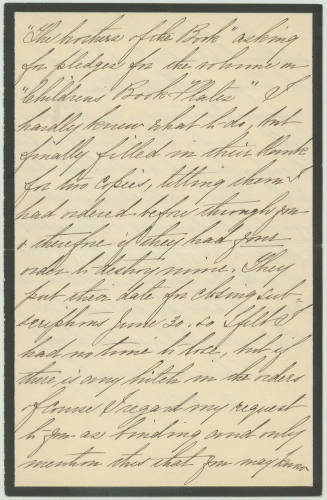 "The            of the Book" asking
for pledges for the volume on
"Children's Book Plates" I
hardly knew what to do, but
finally filled in their blank
for two copies, telling them I
had ordered before through you
& therefore if they had your
order to destroy mine. They
put their date for closing sub=
scriptions June 30. so I felt I
had no time to lose, but if
there is any hitch in the orders
of course I regard my request
to you as binding and only
mention this that you may know